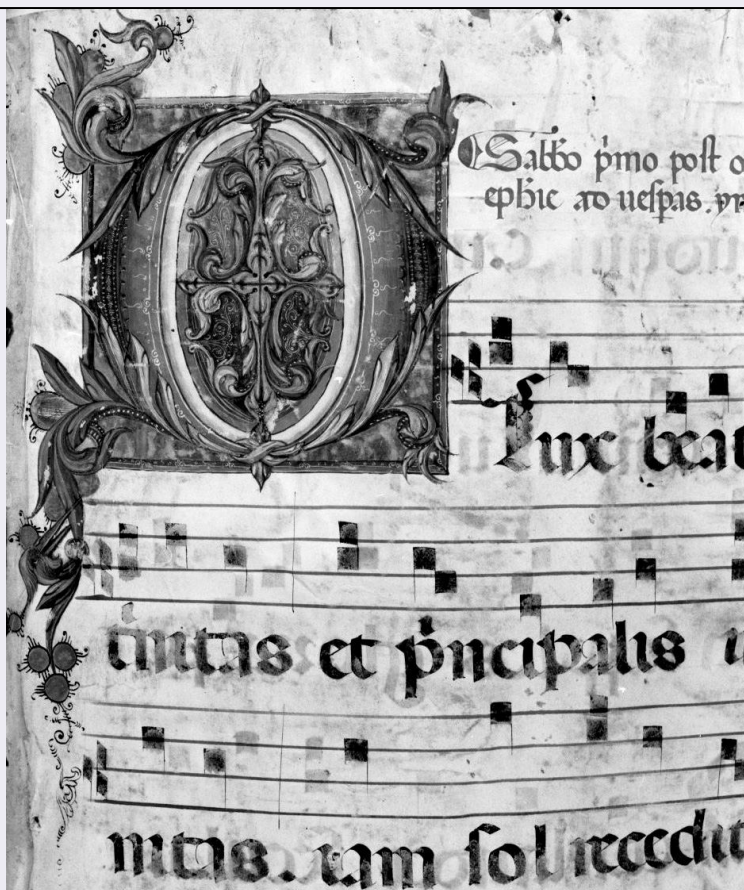 Sabbo p̄mo post o
ephie ad uespas. ym
O Lux beat
t̄nitas et p̄ncipalis u
nitas. iam sol recedit